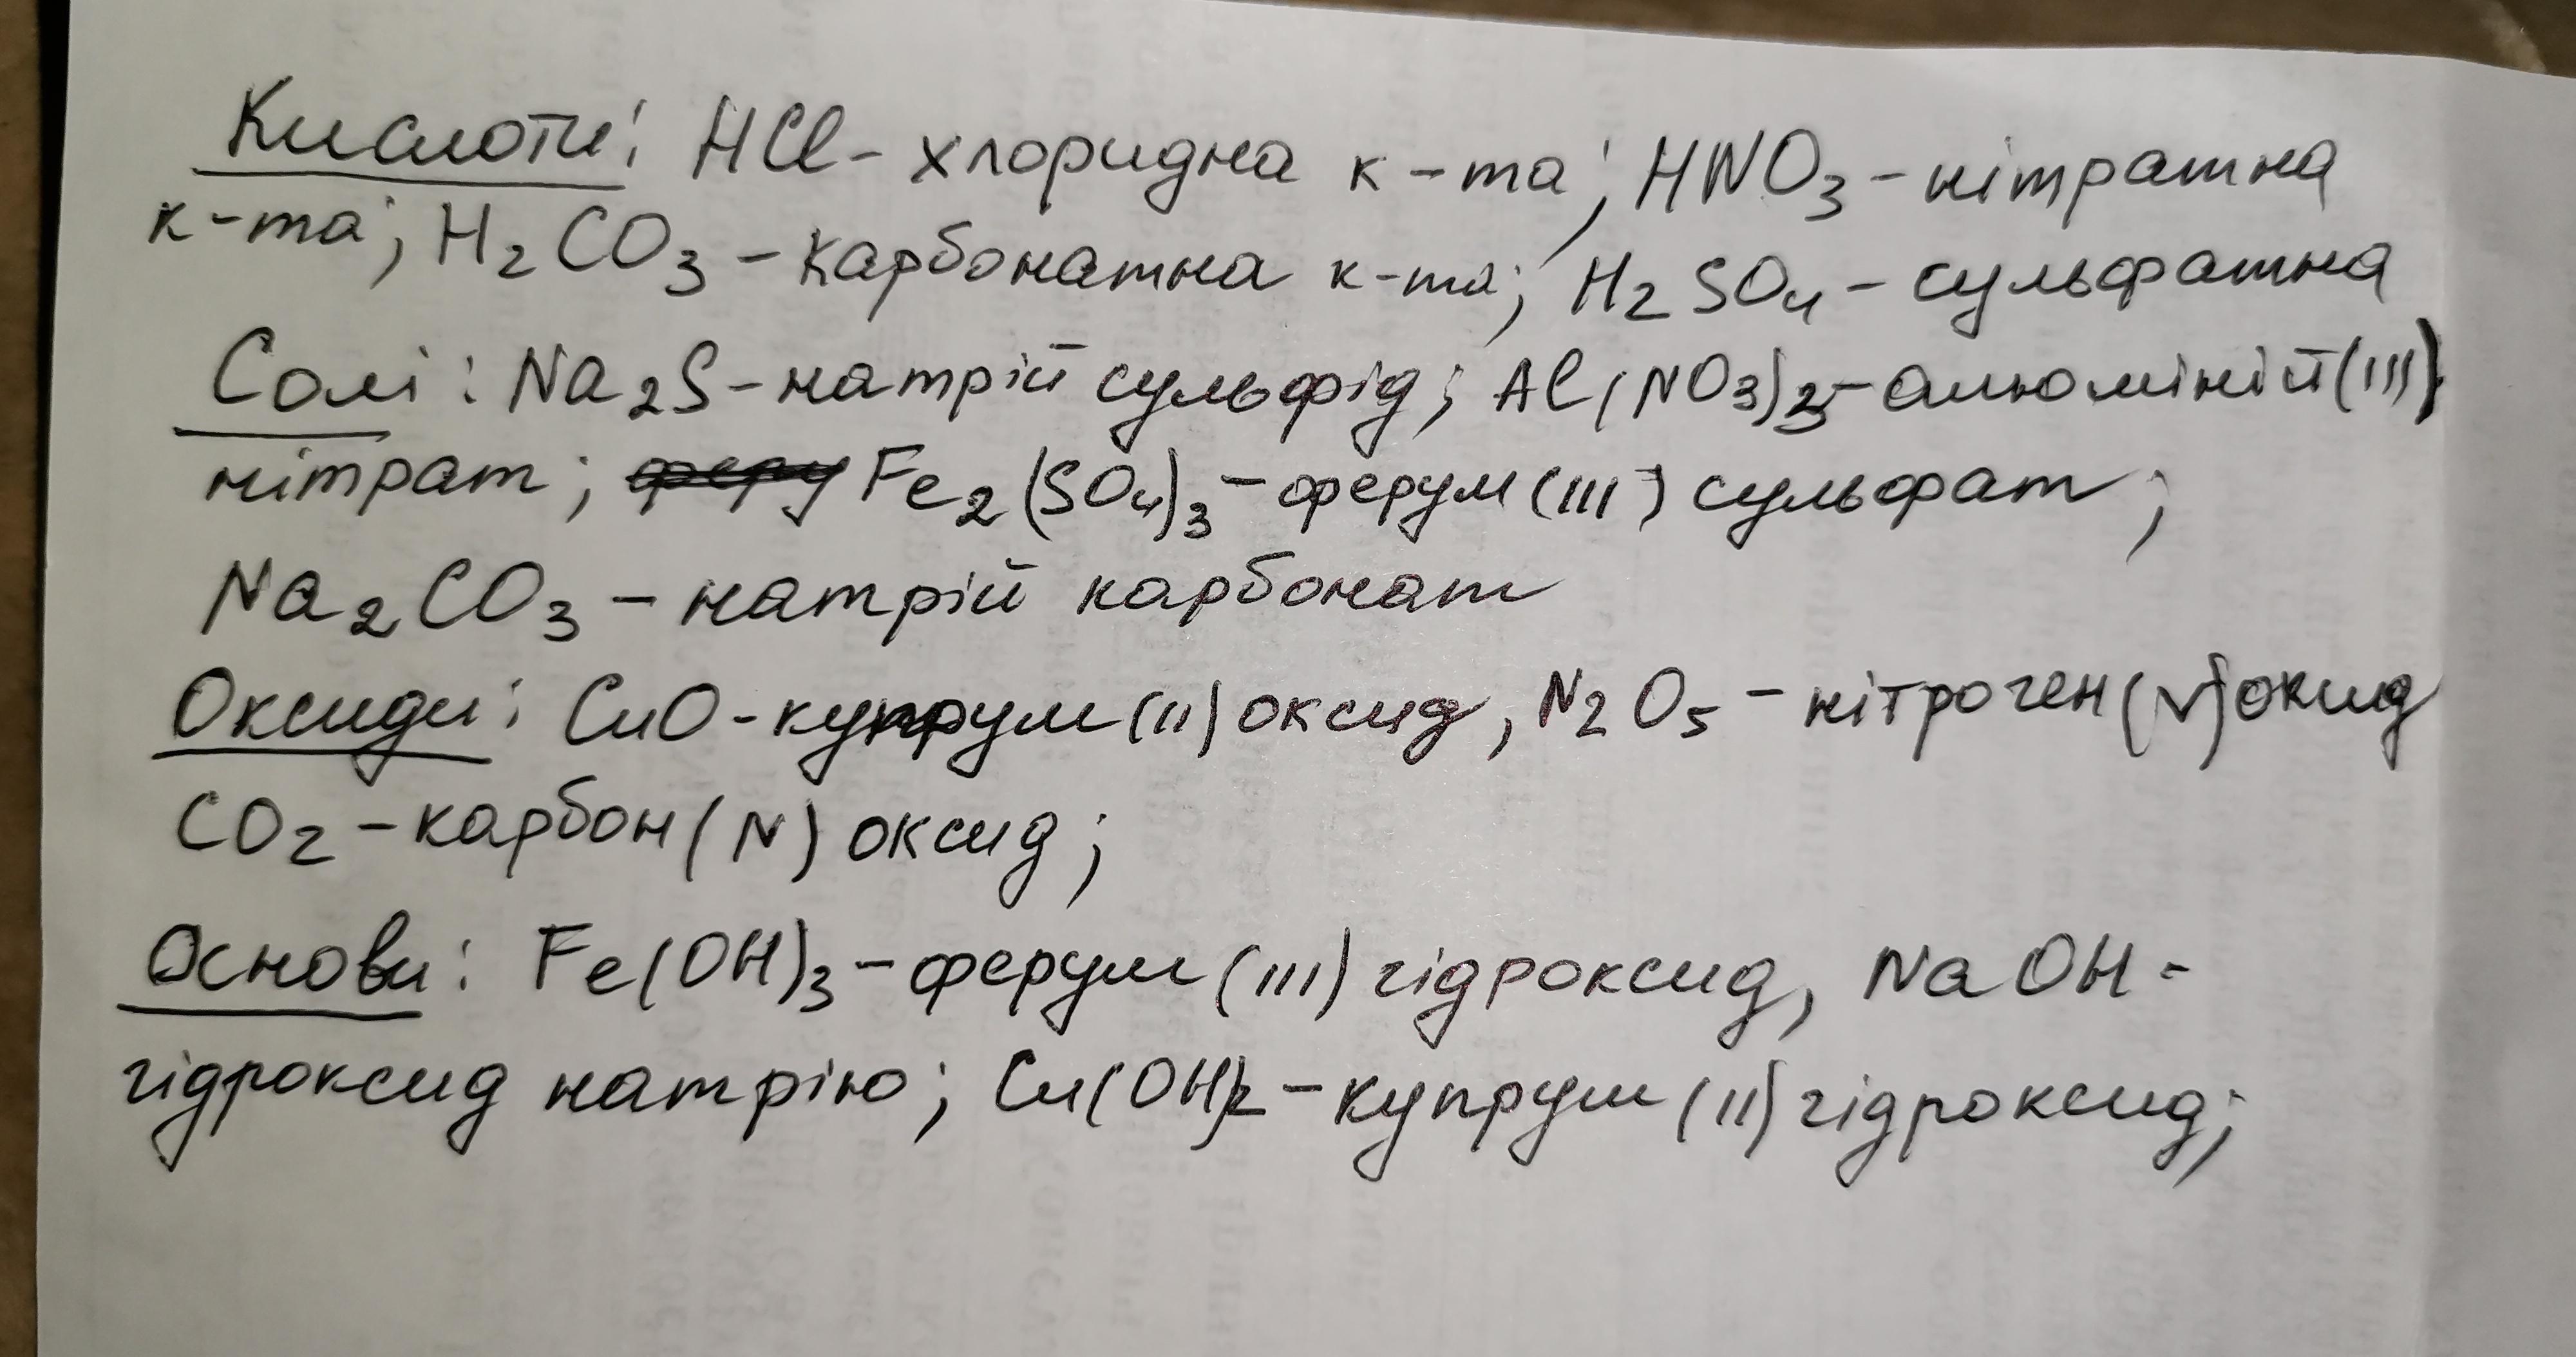 Кислоти: HCl - хлоридна к-та; HNO₃ - нітратна
к-та; H₂CO₃ - карбонатна к-та; H₂SO₄ - сульфатна
Солі: Na₂S - натрій сульфід; Al(NO₃)₃ - алюміній (III)
нітрат; феру Fe₂(SO₄)₃ - ферум (III) сульфат;
Na₂CO₃ - натрій карбонат
Оксиди: CuO - купрум (II) оксид, N₂O₅ - нітроген (V) окид
CO₂ - карбон (IV) оксид;
Основи: Fe(OH)₃ - ферум (III) гідроксид, NaOH -
гідроксид натрію; Cu(OH)₂ - купрум (II) гідроксид;